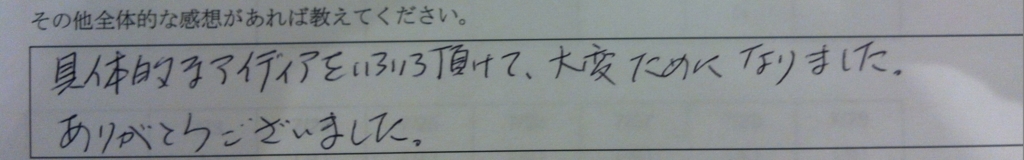 その他全体的な感想があれば教えてください。
具体的なアイディアをいろいろ頂けて、大変ためになりました。
ありがとうございました。